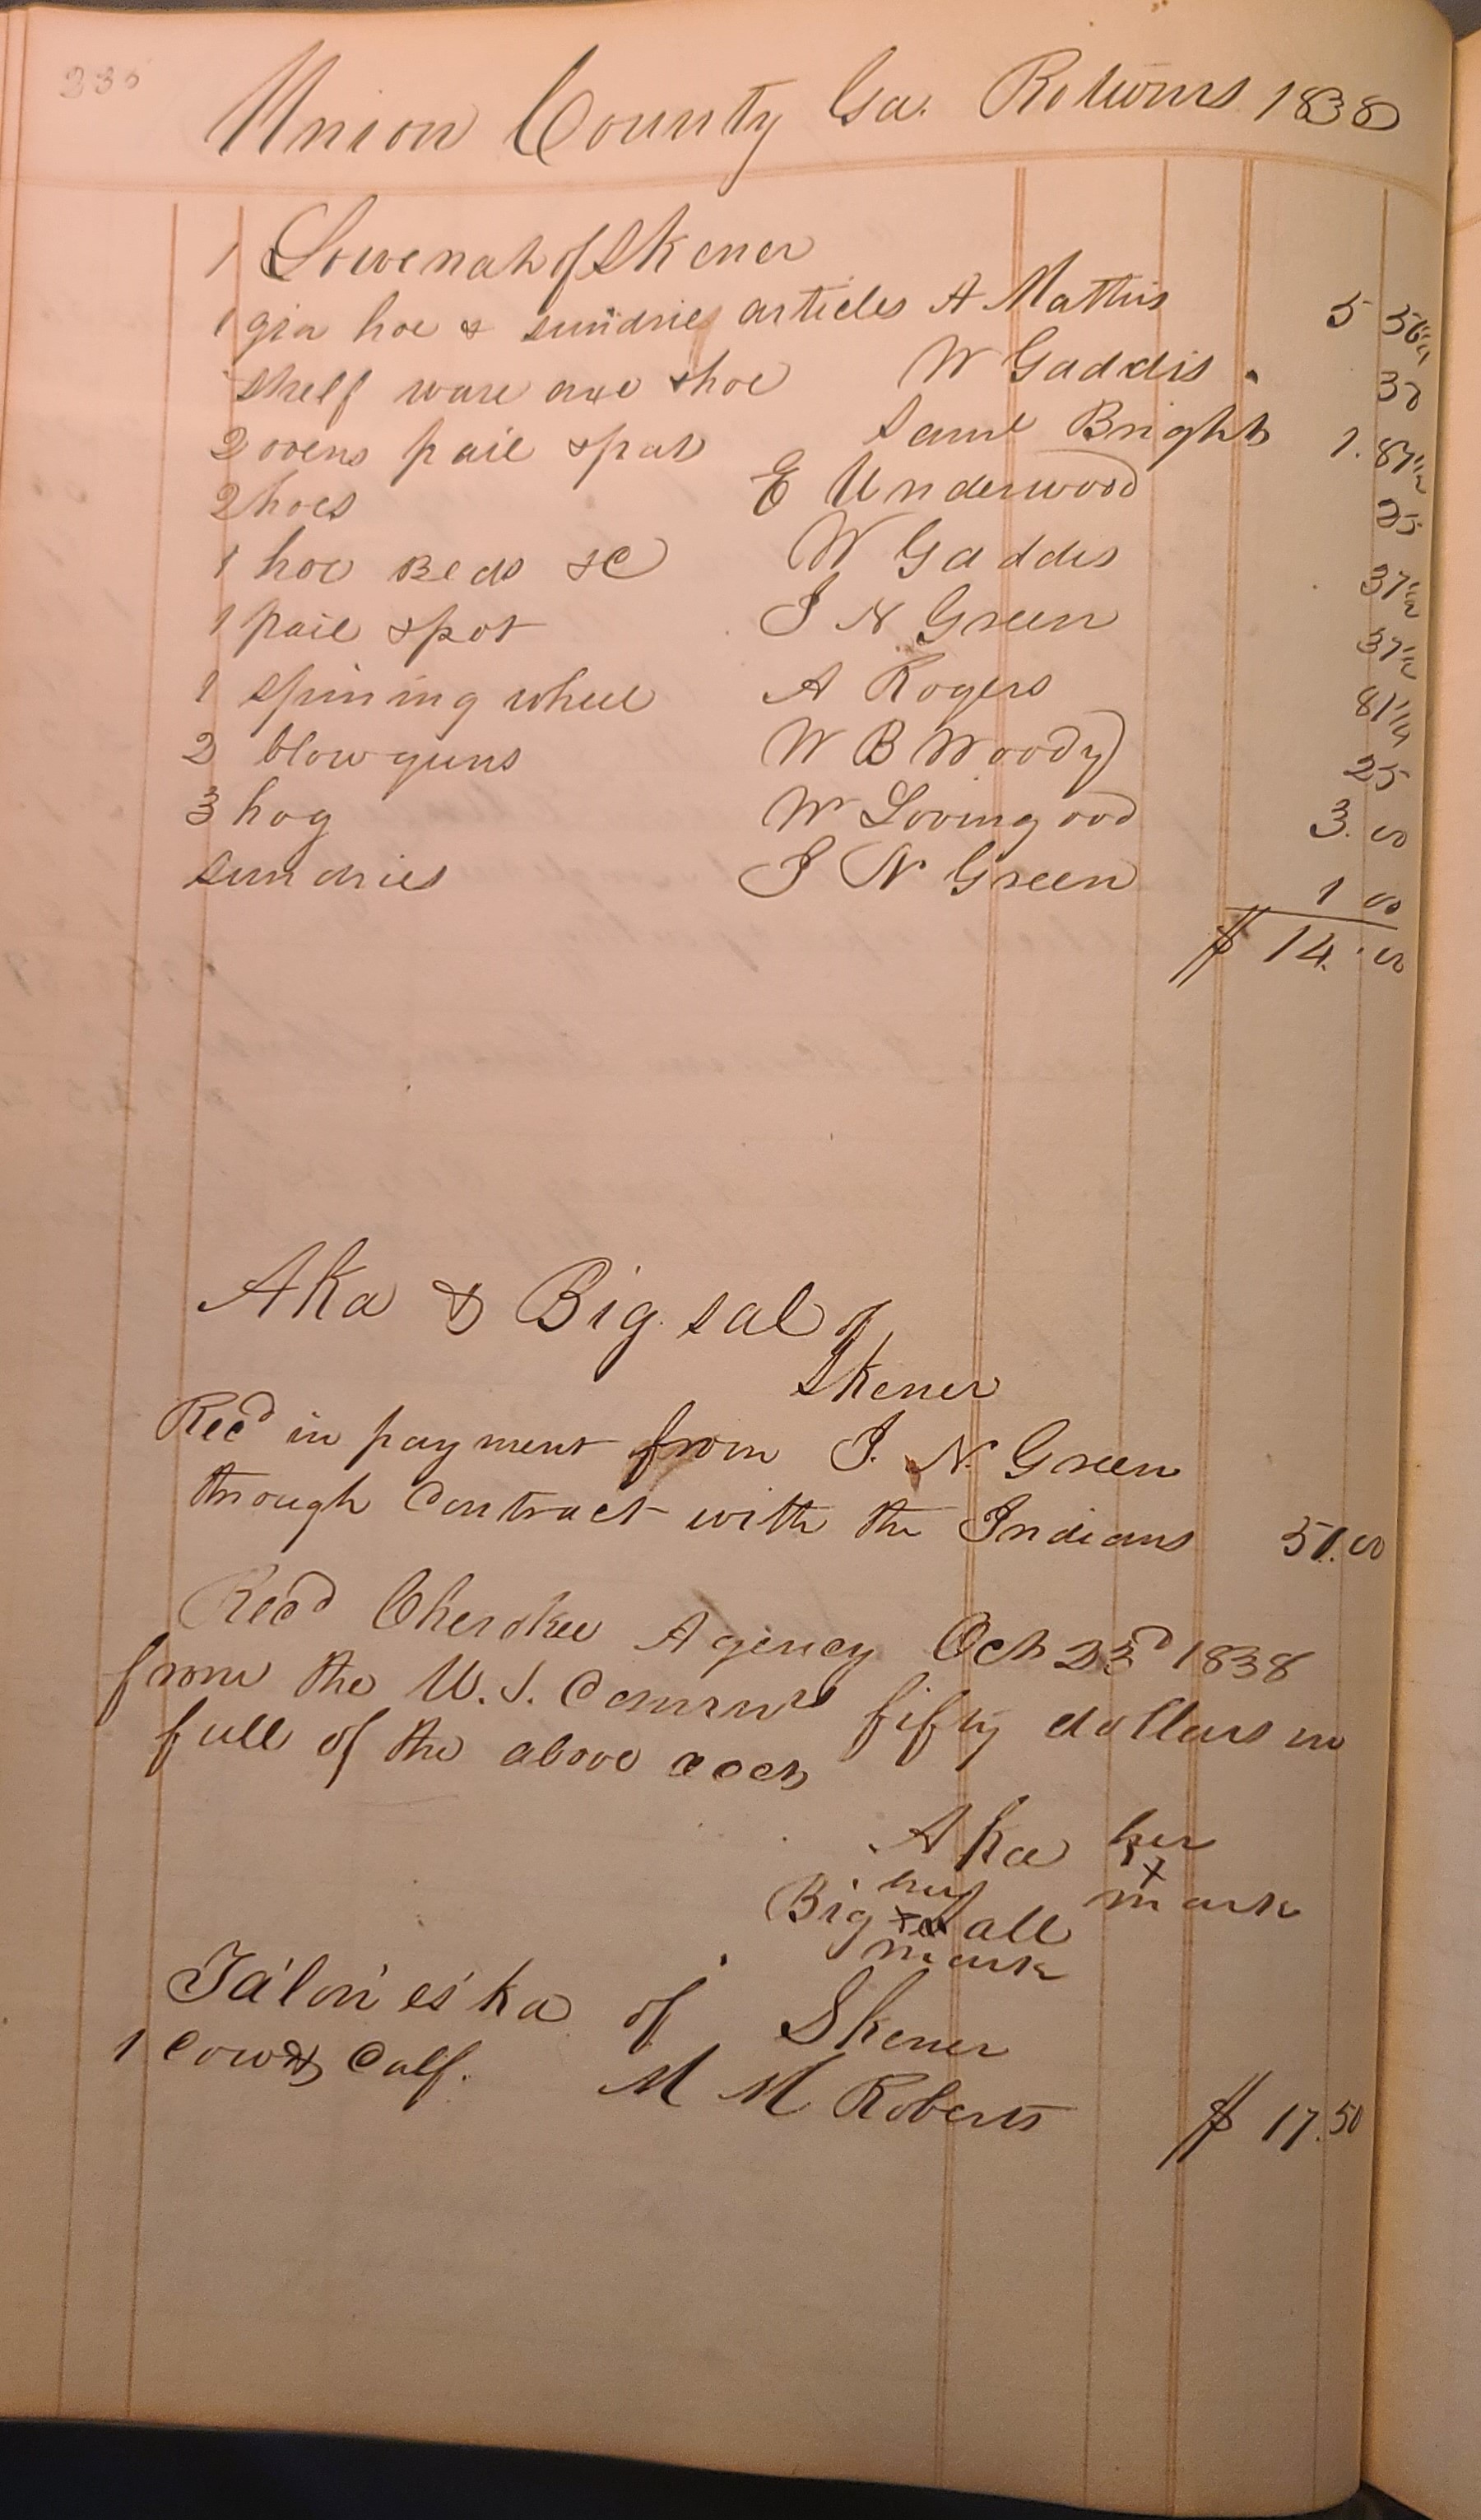 Union County Ga. Returns 1838
1 Sowenah of Skener
1 gin hoe & sundries articles A Mathis 5 56 1/4
Shelf ware axe & hoe W Gaddis 30
2 ovens pail & pot Saml Bright 1.87 1/2
2 hoes E Underwood 25
1 hoe Beds &C W Gaddis 37 1/2
1 pail & pot J N Green 37 1/2
1 spining wheel A Rogers 81 1/4
2 blow guns W B Woody 25
3 hog W Lovingood 3.00
Sundries J N Green 1 00
$ 14.00
Aka & Big Sal of
Skener
Recd in payment from J. N. Green
through Contract with the Indians 51.00
Recd Cherokee Agency Oct 23d 1838
from the U.S. Commrs fifty dollars in
full of the above acct
Aka her
x
mark
her
Big x Sall
mark
Ta'lon'es'ka of Skener
1 Cow & Calf. M M Roberts $ 17.50